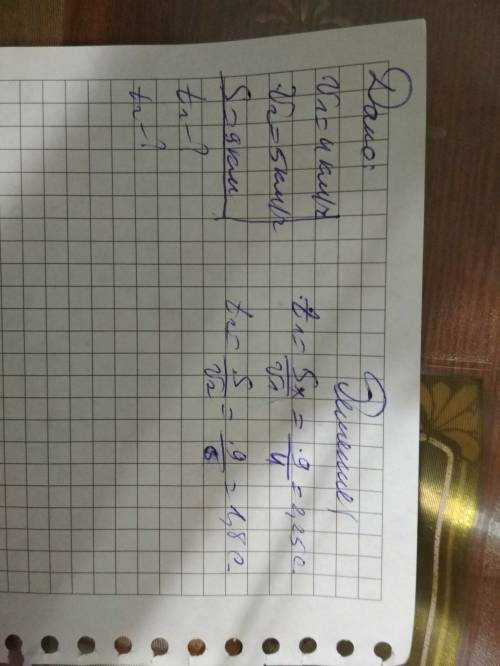 Дано:
V₁=4 км/ч
V₂=5 км/ч
S=9 км
t₁-?
t₂-?
Решение:
t₁= S/V₁ = 9/4 = 2,25 с.
t₂= S/V₂ = 9/5 = 1,8 с.